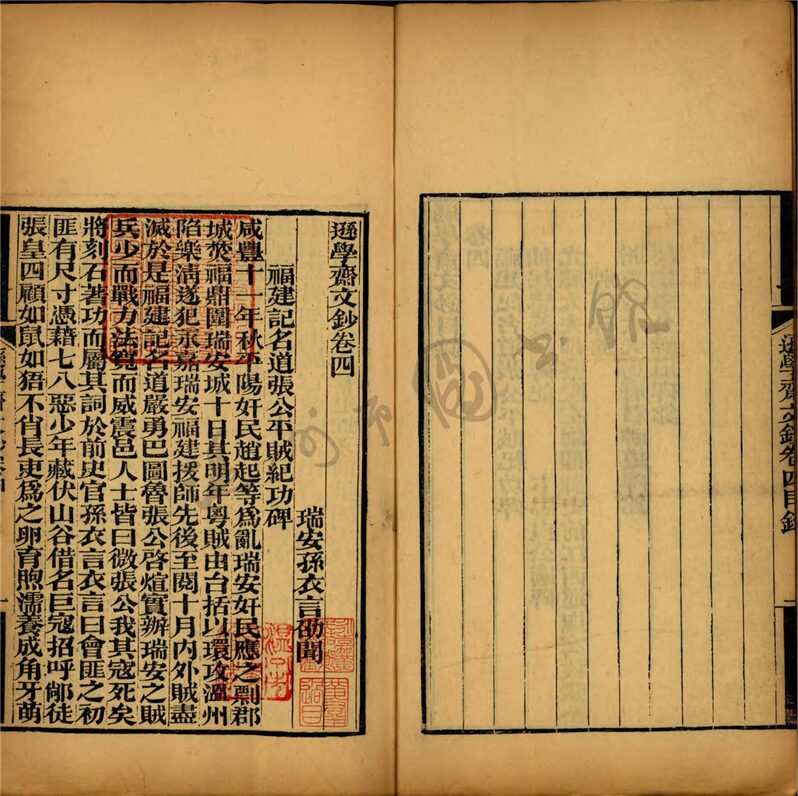 遜學齋文鈔卷四目錄
遜學齋文鈔卷四
瑞安孫衣言劭聞
福建記名道張公平賊紀功碑
咸豐十一年秋平陽奸民趙起等爲亂瑞安奸民應之剽郡
城焚福鼎圍瑞安城十日其明年粵賊由台括以環攻溫州
陷樂淸遂犯永嘉瑞安福建援師先後至閱十月內外賊盡
滅於是福建記名道嚴勇巴圖魯張公啓煊實辦瑞安之賊
兵少而戰力法寬而威震邑人士皆曰微張公我其寇死矣
將刻石著功而屬其詞於前史官孫衣言衣言曰會匪之初
匪有尺寸憑藉七八惡少年藏伏山谷借名巨寇招呼鄉徒
張皇四顧如鼠如狤不肖長吏爲之卵育煦濡養成角牙萌